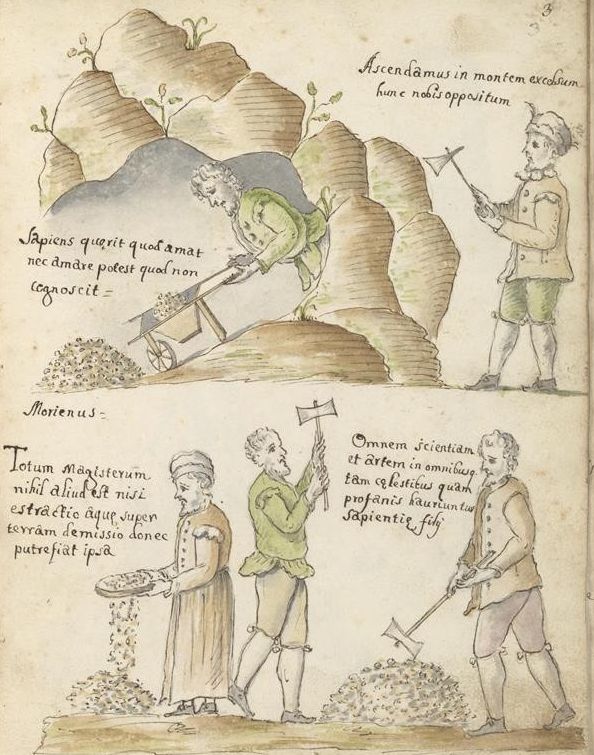 3
3
Ascendamus in montem excelsum
hunc nobis oppositum
Sapiens quęrit quod amat
nec amare potest quod non
cognoscit =
Morienus =
Totum Magisterum
nihil aliud est nisi
estractio aquę super
terram demissio donec
putrefiat ipsa
Omnem scientiam
et artem in omnibusq.
tam cęlestibus quam
profanis hauriuntur
sapientię filij